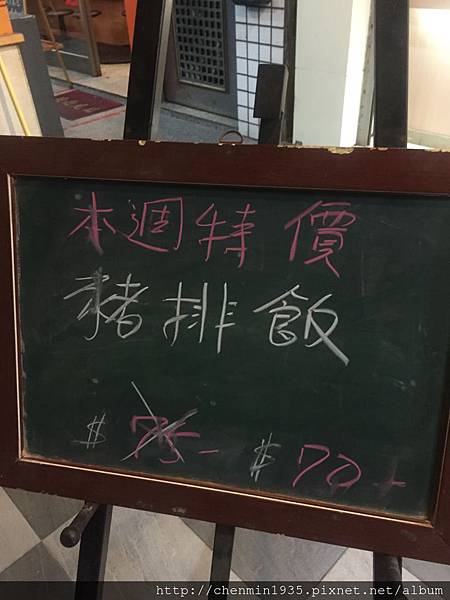 本週特價
豬排飯
$ 75- $ 70-
http://chenmin1935.pixnet.net/album